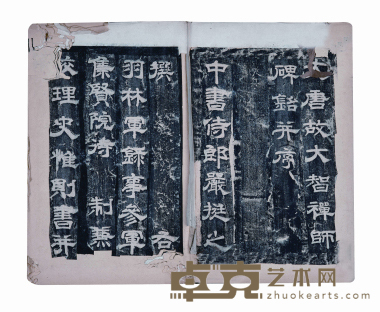 大唐故大智禪師
碑銘并序
中書侍郎嚴挺之
撰
右
羽林軍錄事參軍
集賢院待 制兼
校理史惟則書并
卓克艺术网
zhuokearts.com